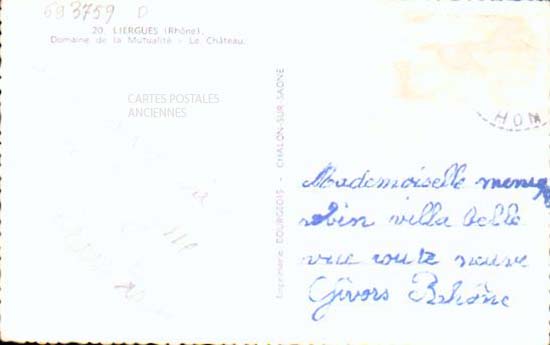 693759 D
20. LIERGUES (Rhône).
Domaine de la Mutualité - Le Château.
CARTES POSTALES
ANCIENNES
Imprimerie BOURGEOIS - CHALON-SUR-SAONE
HON
Mademoiselle
robin villa belle
vue route neuve
Givors Rhône